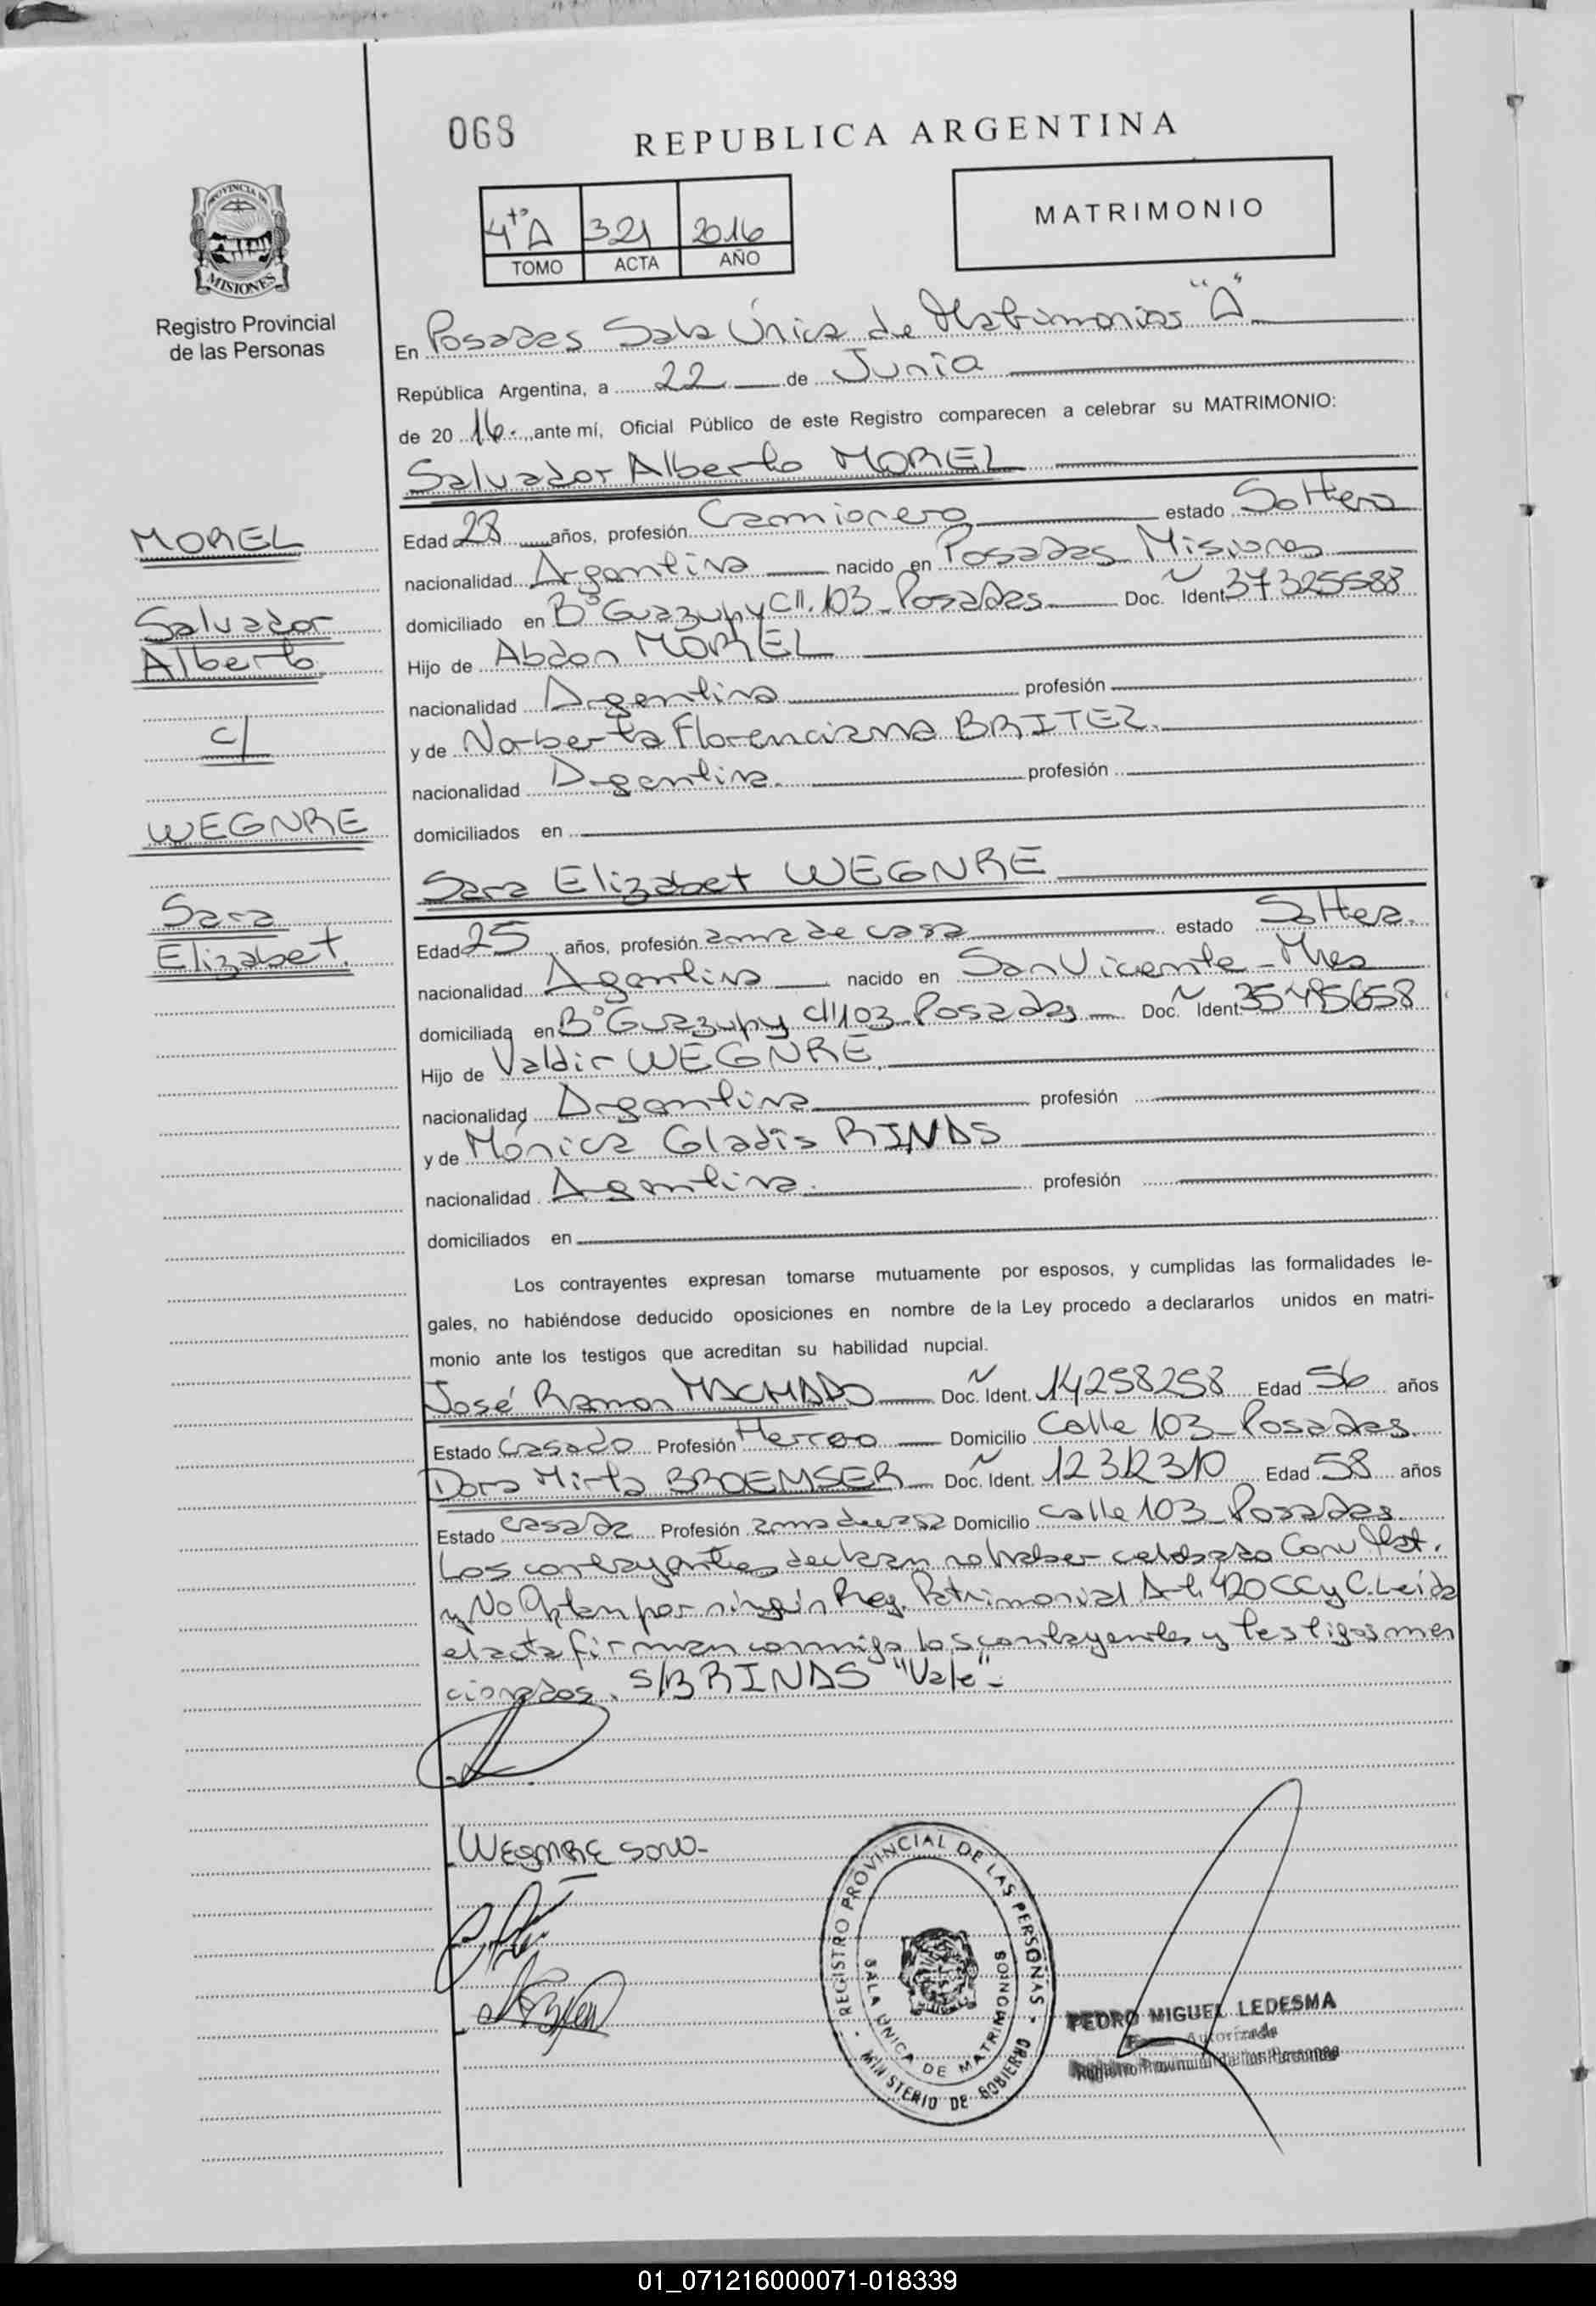 068
REPUBLICA ARGENTINA
PROVINCIA DE
MISIONES
Registro Provincial
de las Personas
4to A 321 2016
TOMO ACTA AÑO
MATRIMONIO
En Posadas Sala Única de Matrimonios "A"
República Argentina, a 22 de Junio
de 2016., ante mí, Oficial Público de este Registro comparecen a celebrar su MATRIMONIO:
Salvador Alberto MOREL
Edad 28 años, profesión Camionero estado Soltero
nacionalidad Argentina nacido en Posadas Misiones
domiciliado en B° Guazupy Cll. 103 Posadas Doc. Ident. 37325588
Hijo de Abdon MOREL
nacionalidad Argentina profesión
y de Norberta Florenciana BRITEZ.
nacionalidad Argentina. profesión
domiciliados en
Sara Elizabet WEGNRE
Edad 25 años, profesión ama de casa estado Soltera.
nacionalidad Argentina nacido en San Vicente - Mnes
domiciliada en B° Guazupy cll 103 Posadas Doc. Ident. 35495658
Hijo de Valdir WEGNRE.
nacionalidad Argentina profesión
y de Mónica Gladis RINAS
nacionalidad Argentina. profesión
domiciliados en
Los contrayentes expresan tomarse mutuamente por esposos, y cumplidas las formalidades le-
gales, no habiéndose deducido oposiciones en nombre de la Ley procedo a declararlos unidos en matri-
monio ante los testigos que acreditan su habilidad nupcial.
José Ramon MACHADO Doc. Ident. 14258258 Edad 56 años
Estado Casado Profesión Domicilio Calle 103 Posadas.
Dora Mirta BROEMSER Doc. Ident. 12312310 Edad 58 años
Estado Casada Profesión ama de casa Domicilio calle 103 Posadas.
Los contrayentes declaran no haber celebrado Conv Mat.
y No Optan por ningún Reg. Patrimonial Art. 420 CC y C. Leída
el acta firman conmigo los contrayentes y testigos men
cionados. S/B RINAS "Vale"-
MOREL
Salvador
Alberto
c/
WEGNRE
Sara
Elizabet.
WEGNRE SARA-
REGISTRO PROVINCIAL DE LAS PERSONAS
SALA UNICA DE MATRIMONIOS
MINISTERIO DE GOBIERNO
PEDRO MIGUEL LEDESMA
Autorizada
Registro Provincial de las Personas
01_071216000071-018339